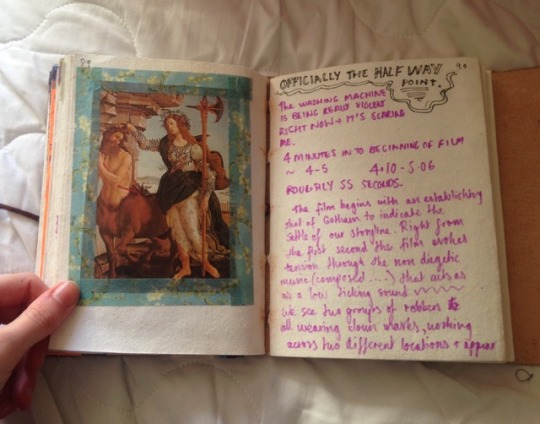 89
90
OFFICIALLY THE HALF WAY
POINT.
THE WASHING MACHINE
IS BEING REALLY VIOLENT
RIGHT NOW + IT'S SCARING
ME.
4 MINUTES IN TO BEGINNING OF FILM
~ 4-5 4.10 - 5.06
ROUGHLY 55 SECONDS.
The film begins with an establishing
shot of Gotham to indicate the
of our storyline. Right from
the first second the film evokes
tension through the non diegetic
music (composed ....) that acts as
as a low ticking sound
We see two groups of robbers
all wearing clown masks, working
across two different locations + appear